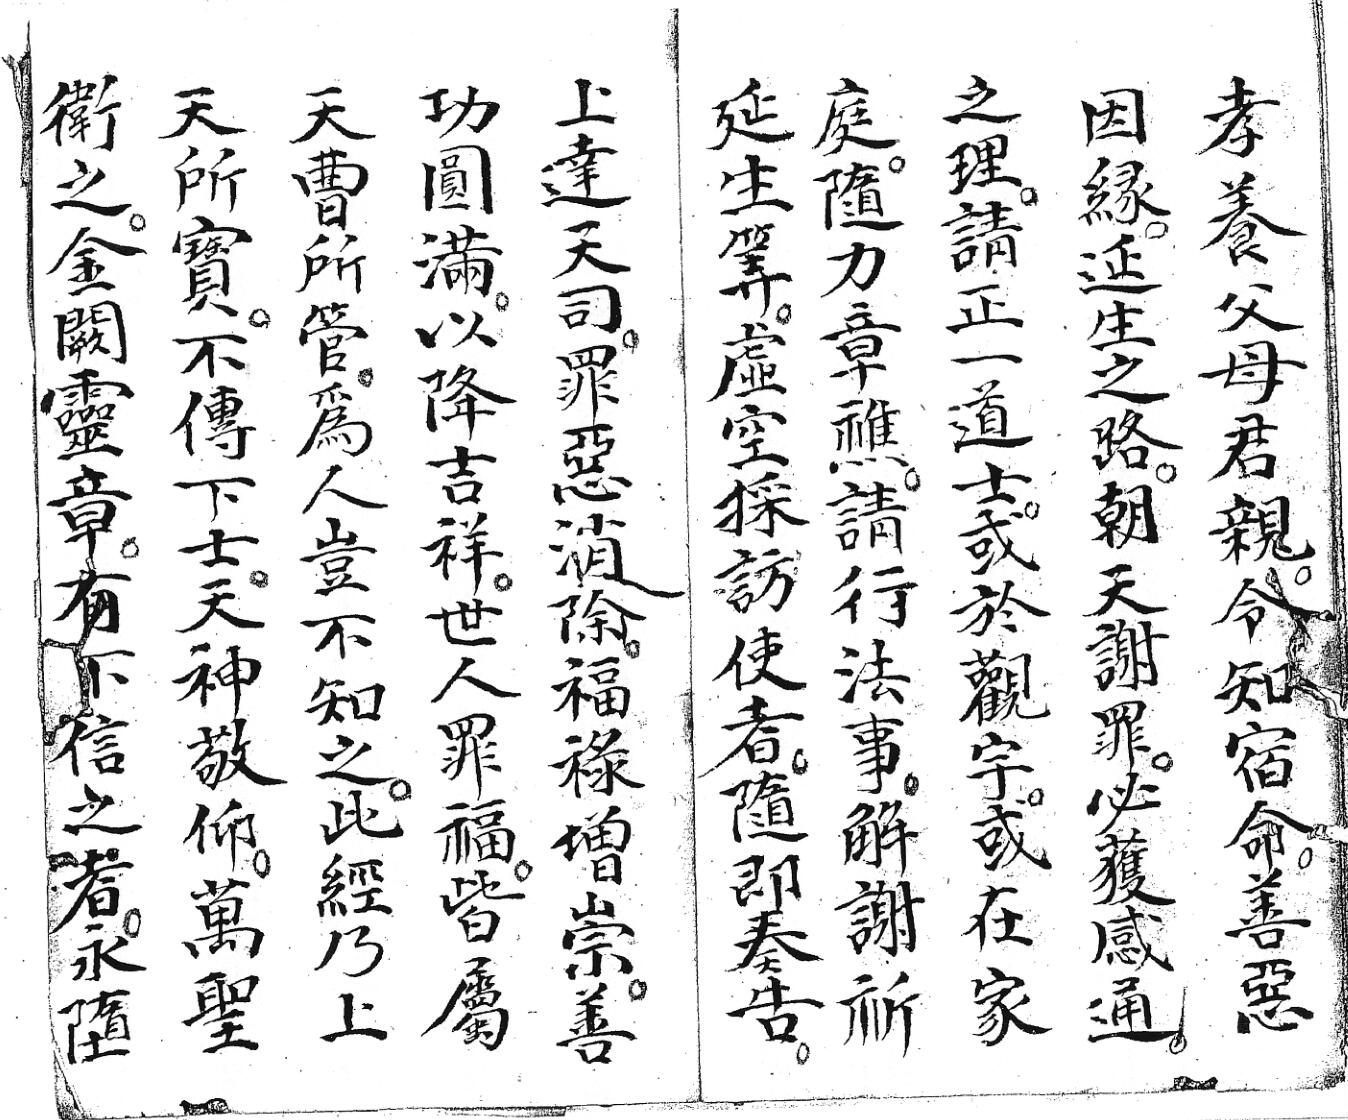 孝養父母君親。令知宿命。善惡
因緣。延生之路。朝天謝罪。必獲感通。
之理。請正一道士。或於觀宇。或在家
庭。隨力章醮。請行法事。解謝祈
延生等。虛空採訪使者。隨即奏告。
上達天司。罪惡消除。福祿增崇。善
功圓滿。以降吉祥。世人罪福。皆屬
天曹所管。爲人豈不知之。此經乃上
天所寶。不傳下士。天神敬仰。萬聖
衛之。金闕靈章。有不信之者。永墮